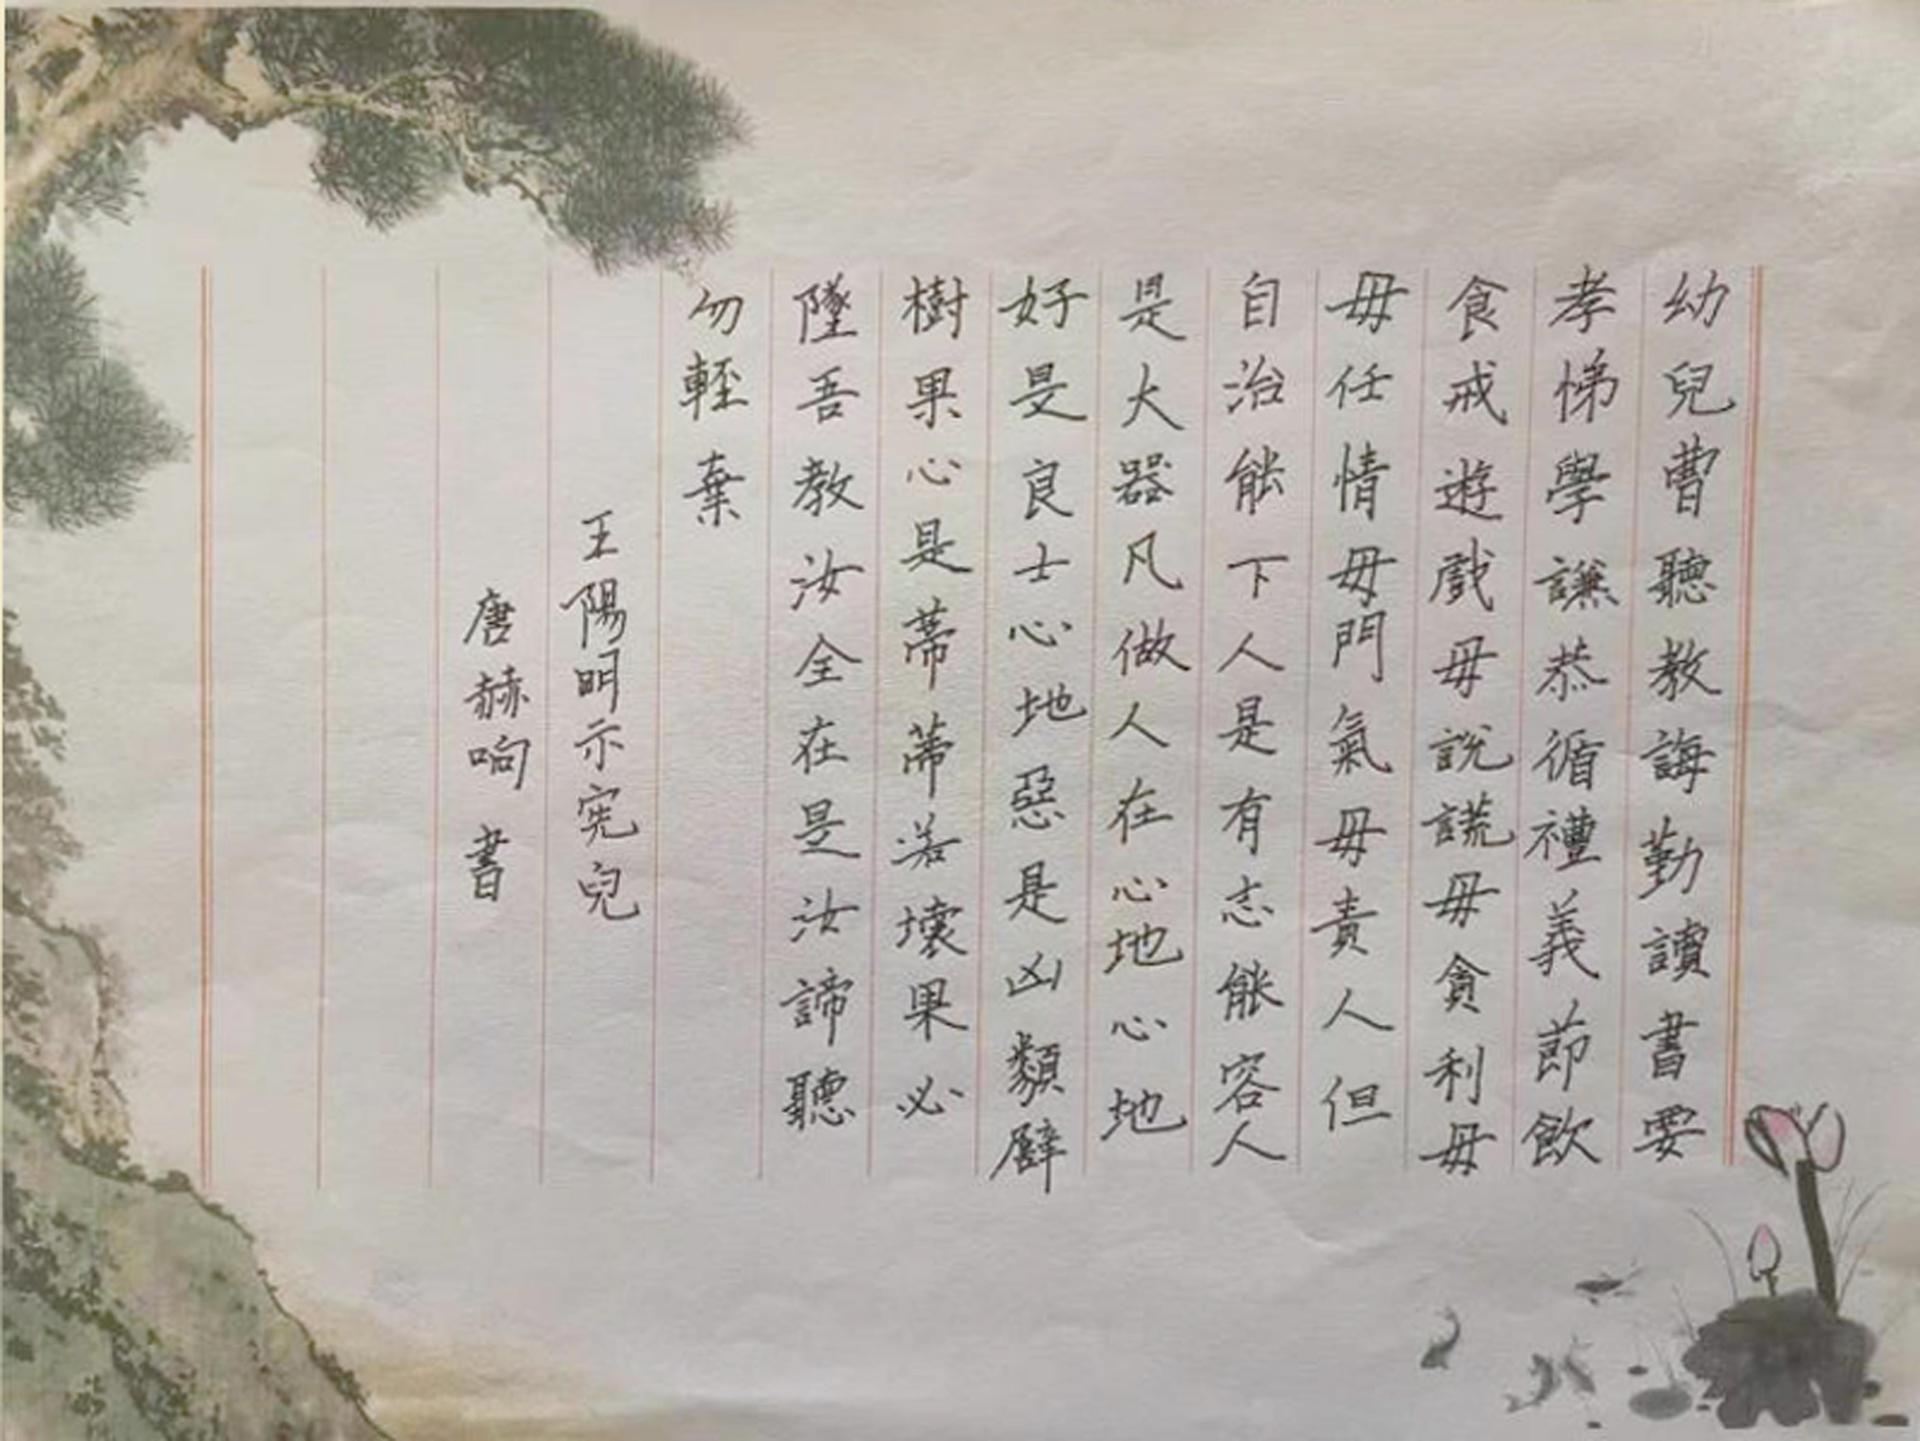 幼兒曹聽教誨勤讀書要
孝悌學謙恭循禮義節飲
食戒遊戲毋說謊毋貪利毋
毋任情毋門氣毋責人但
自治能下人是有志能容人
是大器凡做人在心地心地
好是良士心地惡是凶類譬
樹果心是蒂蒂若壞果必
墜吾教汝全在是汝諦聽
勿輕棄
王陽明示宪兒
唐赫响書